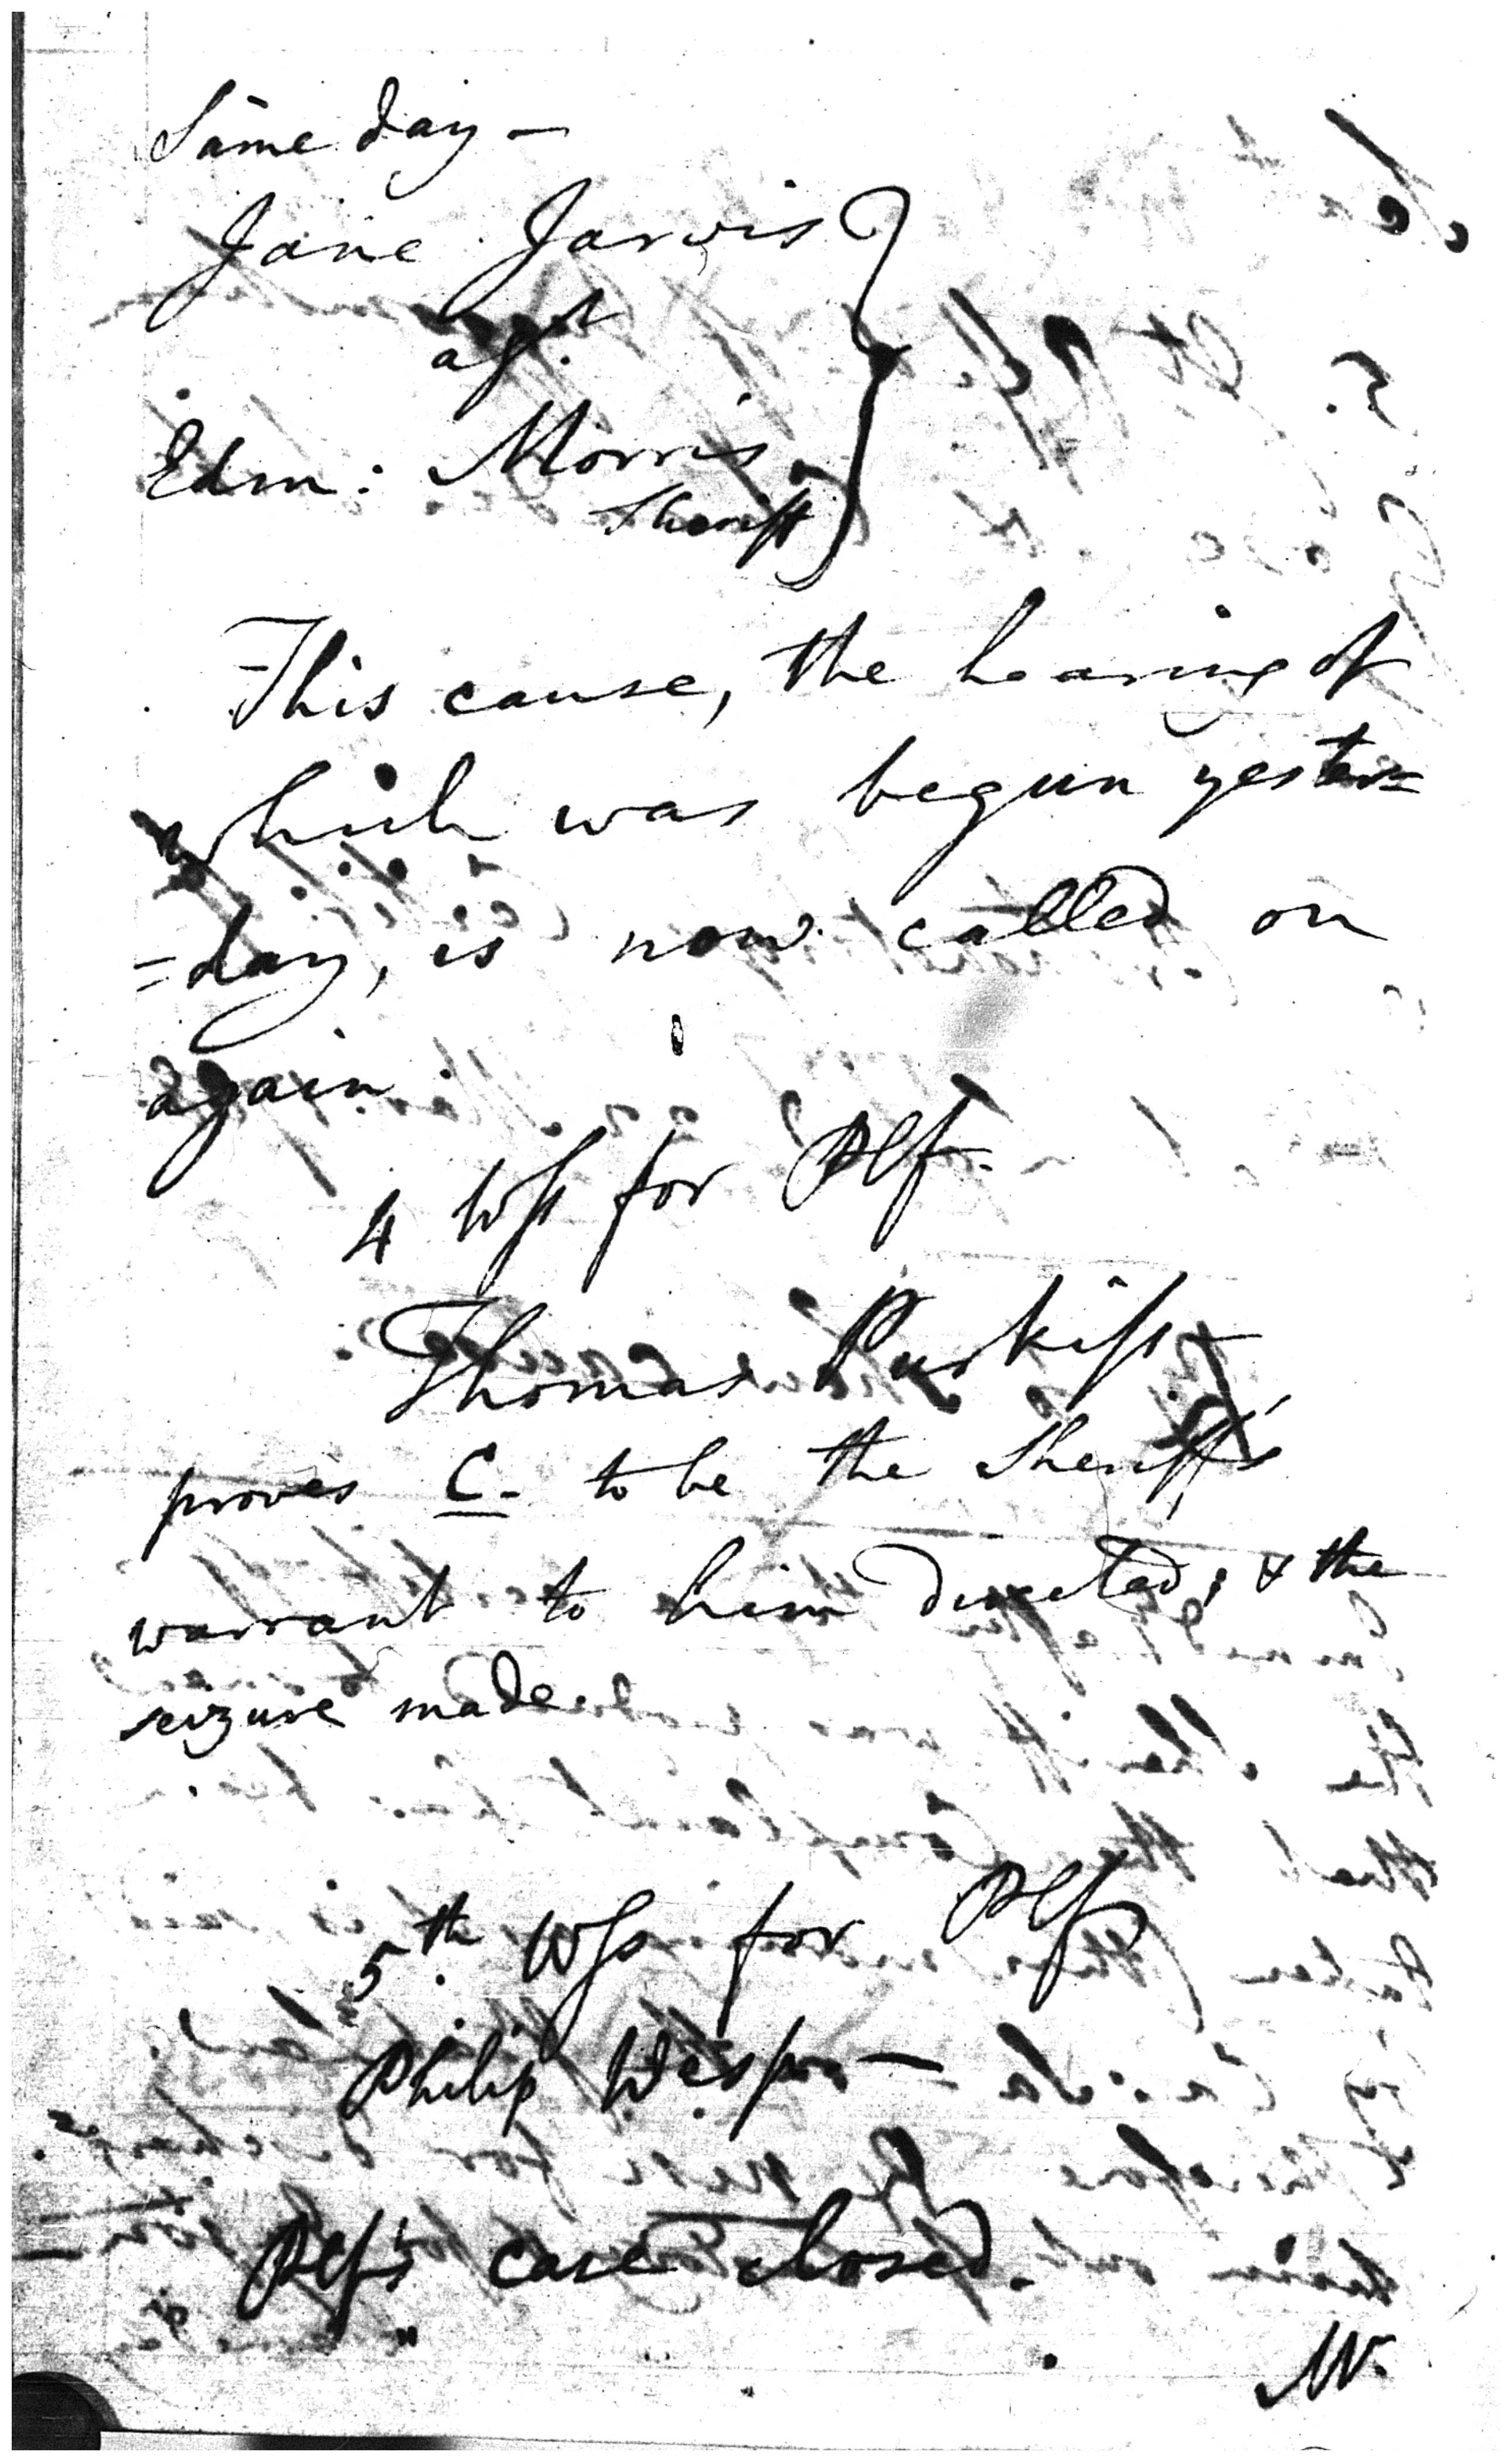 Same day –
Jane Jarvis
agt.
Edm: Morris
Sheriff
This cause, the hearing of
which was begun yester=
=day, is now called on
again.
4 Wss for Plf.
Thomas Purkiss –
proves C. to be the Sheriff's
warrant to him directed; & the
seizure made.
5th. Wss for Plf
Philip
Plf's case closed.
Mr.